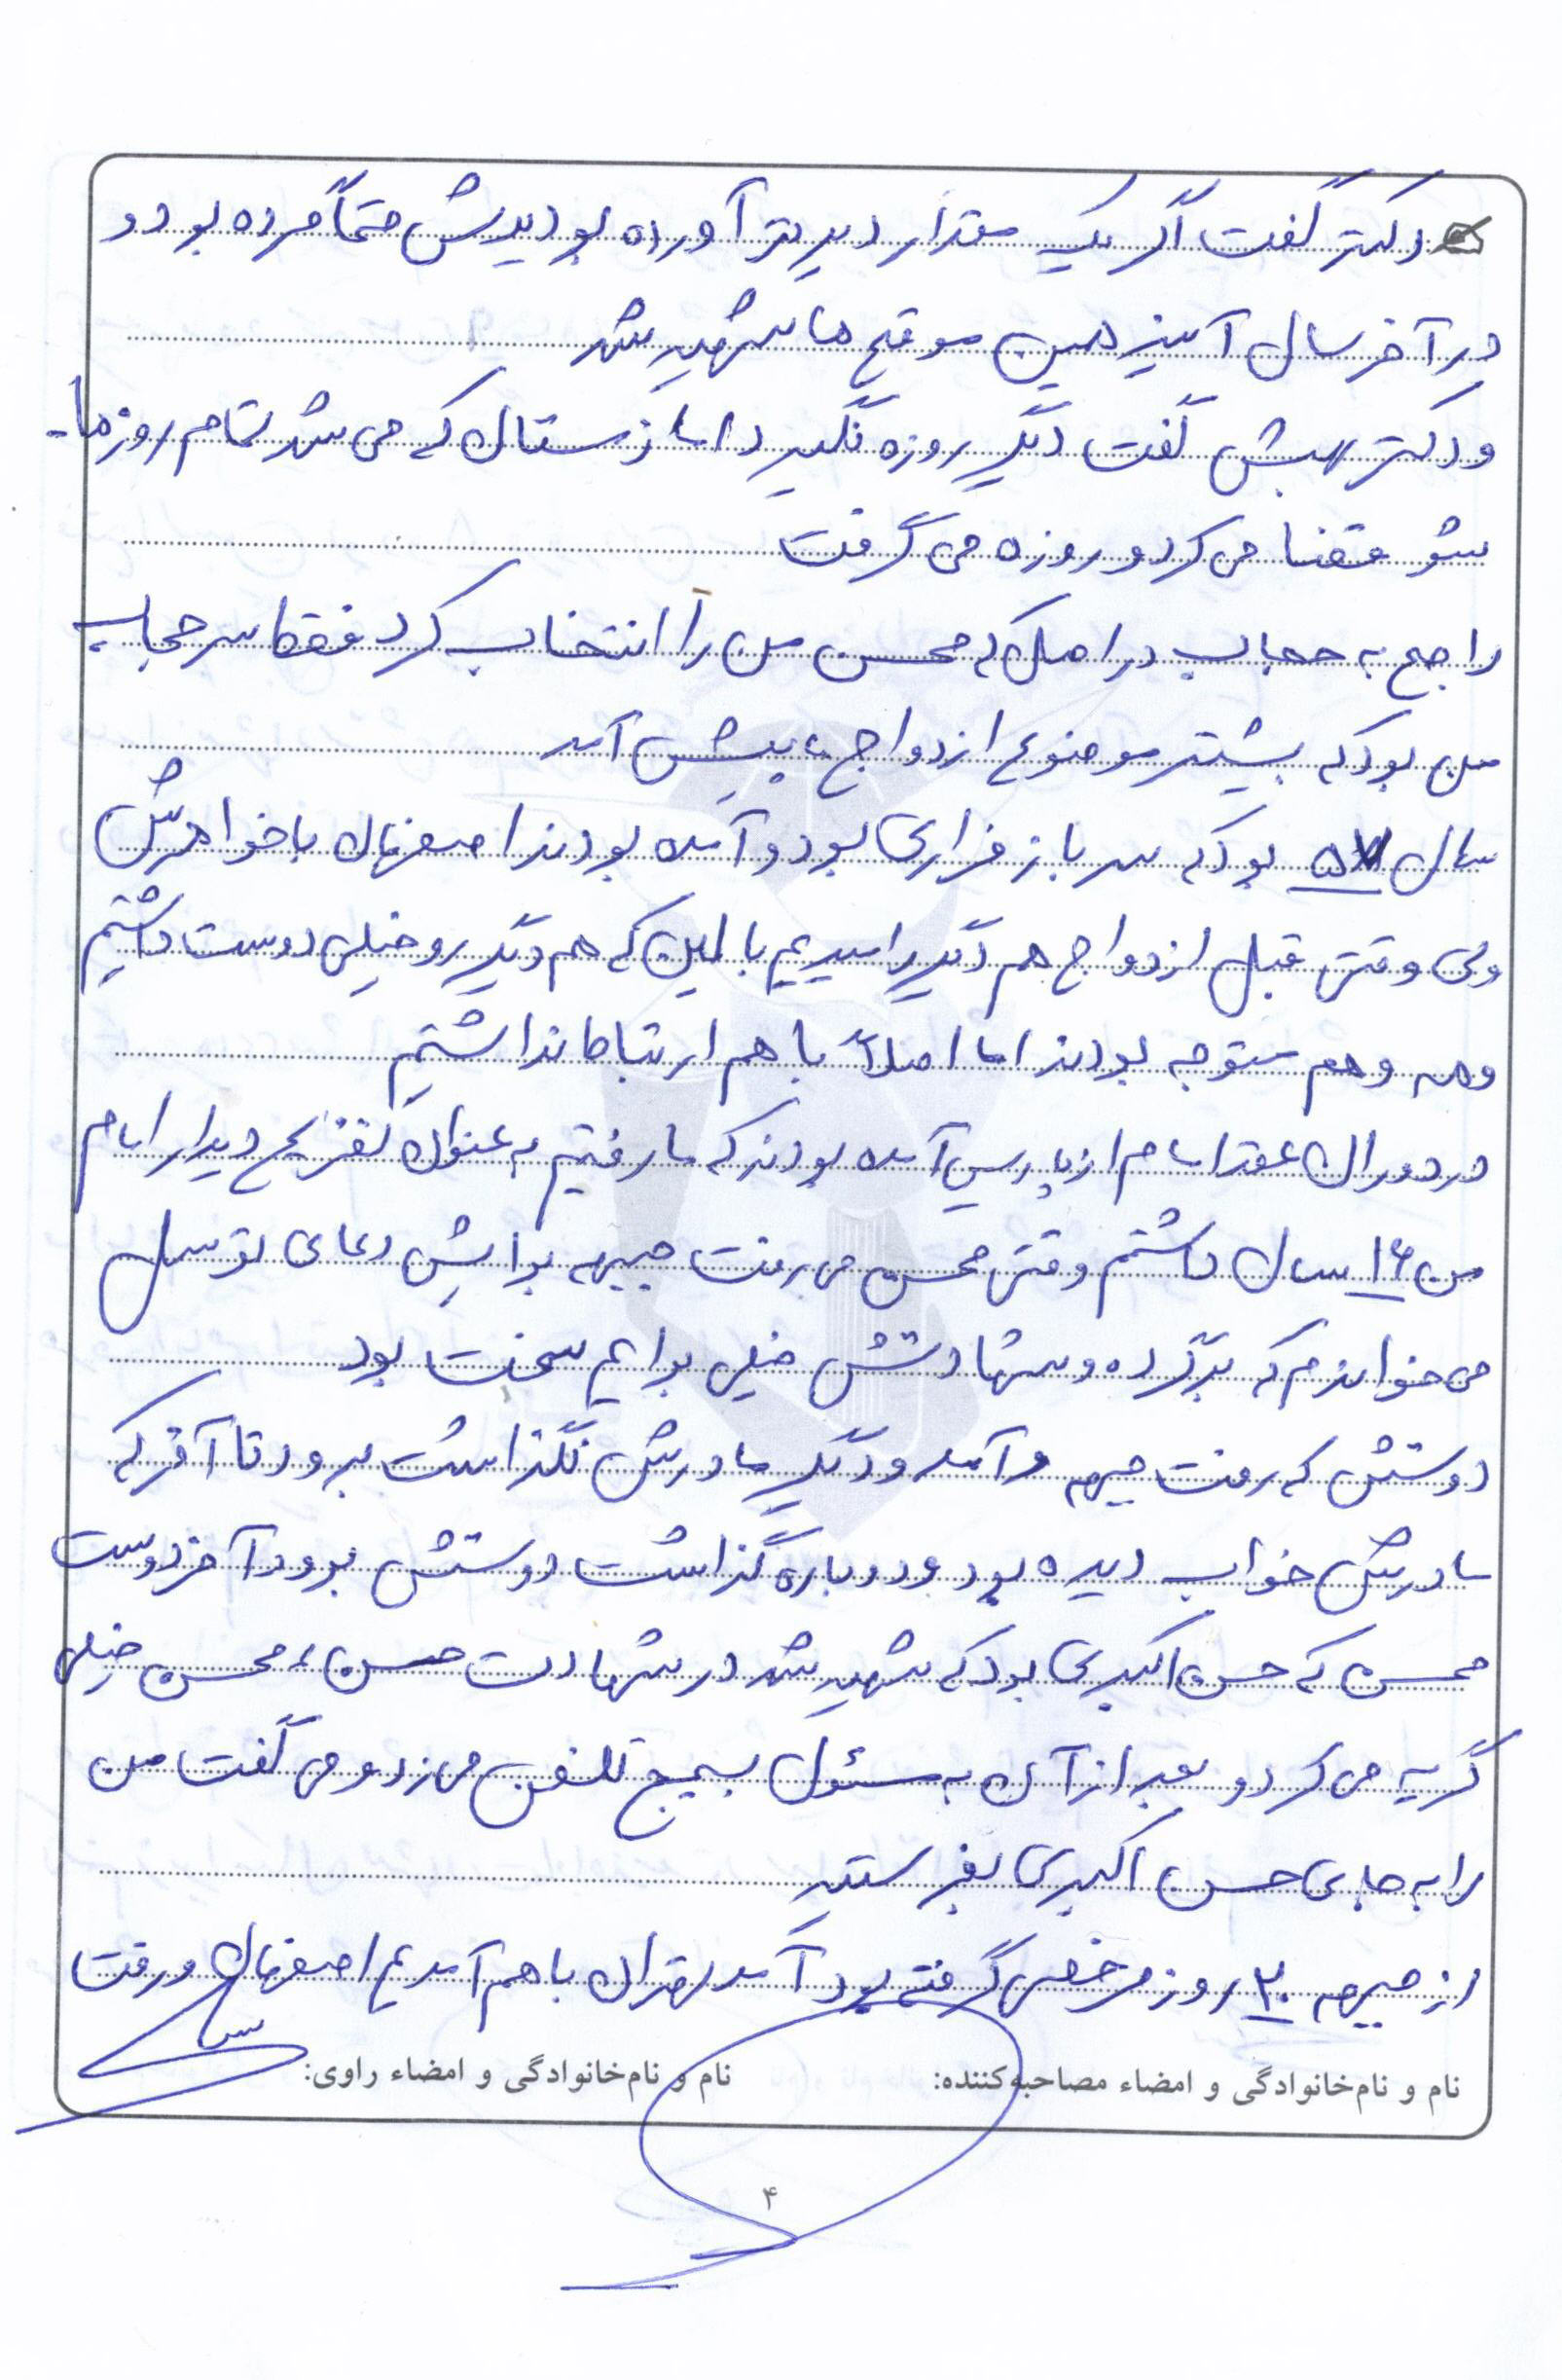 دکتر گفت اگر یک مقدار دیرتر آورده بودیدش حتماً مرده بود و
در آخر سال آینده همین موقع ها شهید شد
و دکتر بهش گفت دیگر روزه نگیرد اما زمستان که می شد تمام روزها
شو قضا می کرد و روزه می گرفت
راجع به حجاب در اصل که محسن من را انتخاب کرد فقط سر حجاب
من بود که بیشتر موضوع ازدواج پیش آمد
سال ۵۷ بود که سرباز فراری بود و آمده بودند اصفهان با خواهرش
ولی وقتی قبل ازدواج هم دیگر را دیدیم با این که هم دیگر رو خیلی دوست داشتیم
و همه متوجه بودند اما اصلاً با هم ارتباط نداشتیم
در دوران عقد امام از پاریس آمده بودند که ما رفتیم به عنوان تفریح دیدار امام
من ۱۶ سال داشتم وقتی محسن می رفت جبهه برایش دعای توسل
می خواندم که برگرده و شهادتش خیلی برایم سخت بود
دوستش که رفت جبهه و آمد و دیگر مادرش نگذاشت برود تا آخر که
مادرش خواب دیده بود و دوباره گذاشت دوستش برود آخر دوست
محسن که حسن اکبری بود که شهید شد در شهادت حسن، محسن خیلی
گریه می کرد و بعد از آن به مسئول بسیج تلفن می زد و می گفت من
را به جای حسن اکبری بفرستید
از جبهه ۲۰ روز مرخصی گرفته بود آمد تهران با هم آمدیم اصفهان و رفت
نام و نام‌خانوادگی و امضاء مصاحبه‌کننده: نام و نام‌خانوادگی و امضاء راوی:
۴